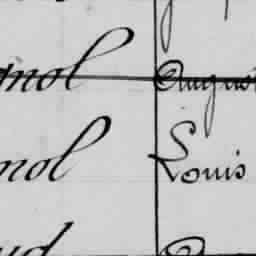 gnol August
nol Louis
ud